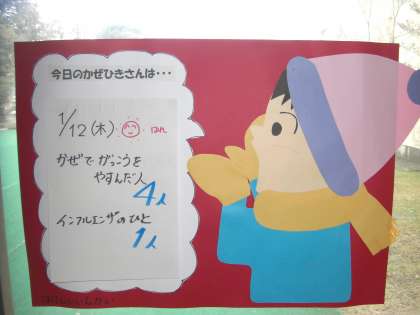 今日のかぜひきさんは・・・
1/12(木)
かぜで がっこうを
やすんだ人
4人
インフルエンザのひと
1人
ほけんいいんかい